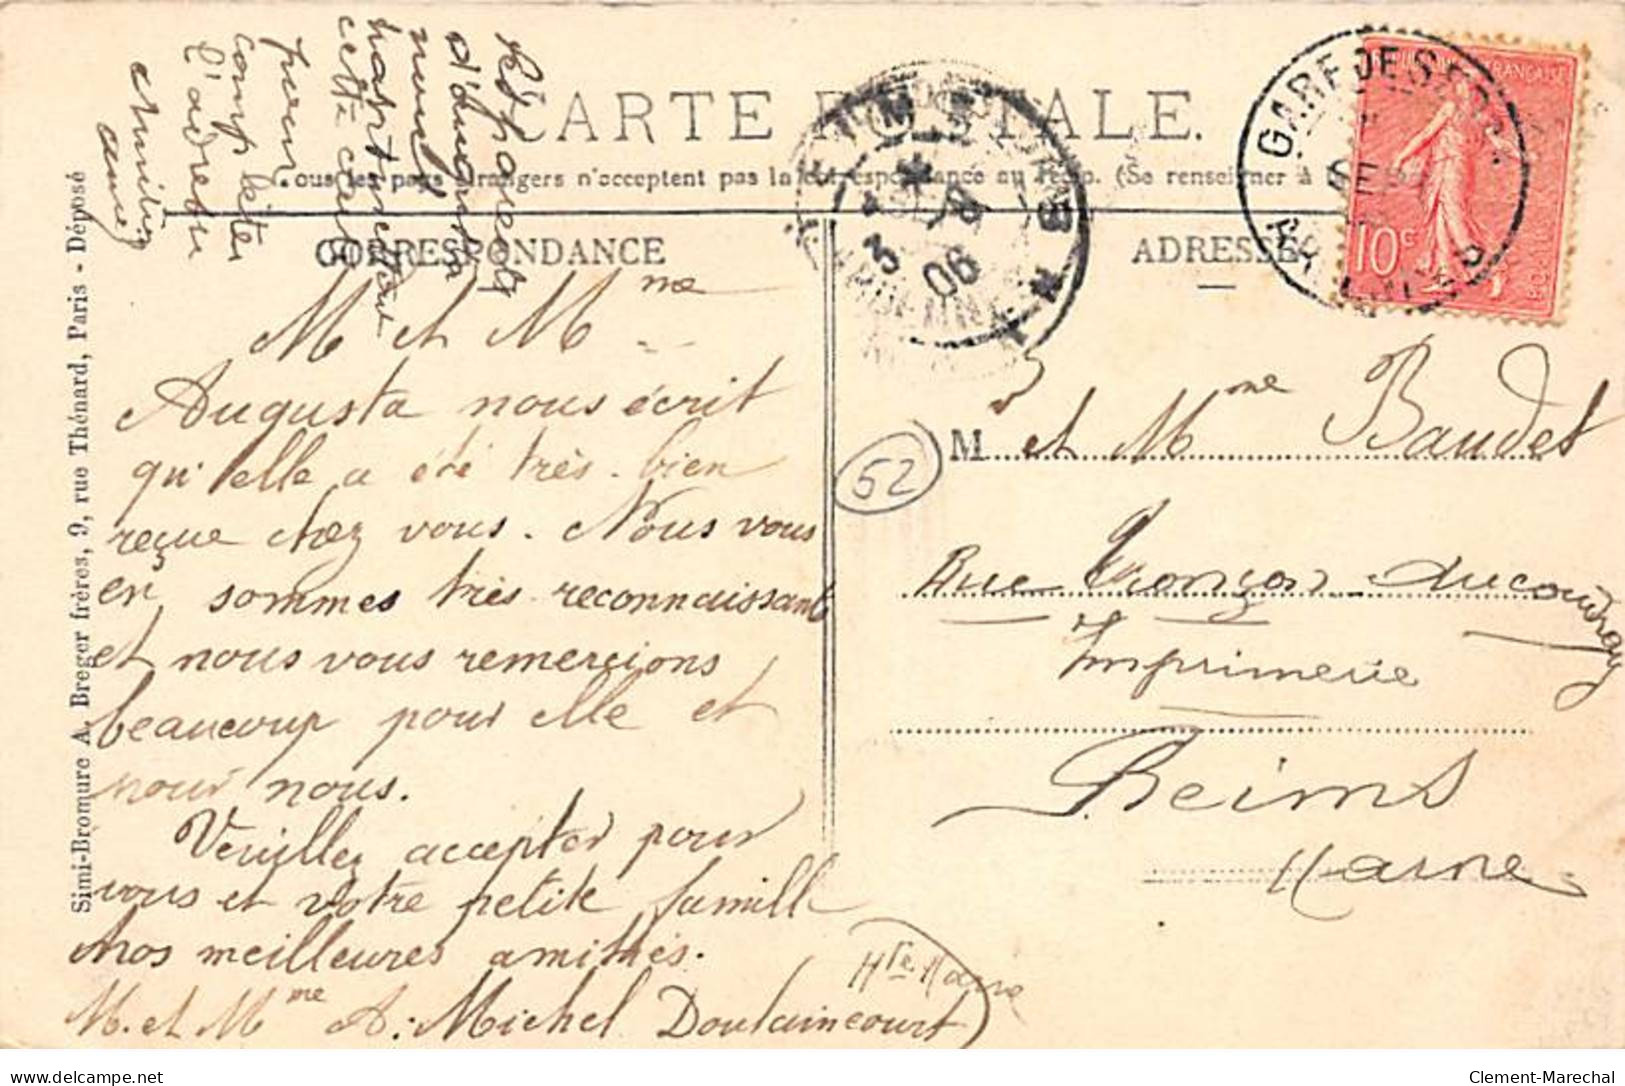 Les parents
d'Augusta
nous
cette carte
pour
compléter
l'adresse
CARTE POSTALE.
Tous les pays étrangers n'acceptent pas la correspondance au recto. (Se renseigner à la
CORRESPONDANCE
M et Mme
Augusta nous écrit
qu'elle a été très bien
reçue chez vous. Nous vous
en sommes très reconnaissants
et nous vous remercions
beaucoup pour elle et
pour nous.
Veuillez accepter pour
vous et votre petite famille
nos meilleures amitiés.
M. et Mme A. Michel Doulaincourt
Hte Marne
Simi-Bromure A. Breger frères, 9, rue Thénard, Paris - Déposé
3 06
GARE DE
RÉPUBLIQUE FRANÇAISE
10c
ADRESSE
52
M et Mme Baudet
Rue Tronçon-Ducoudray
Imprimerie
Reims
Marne
delcampe.net
Clement-Marechal